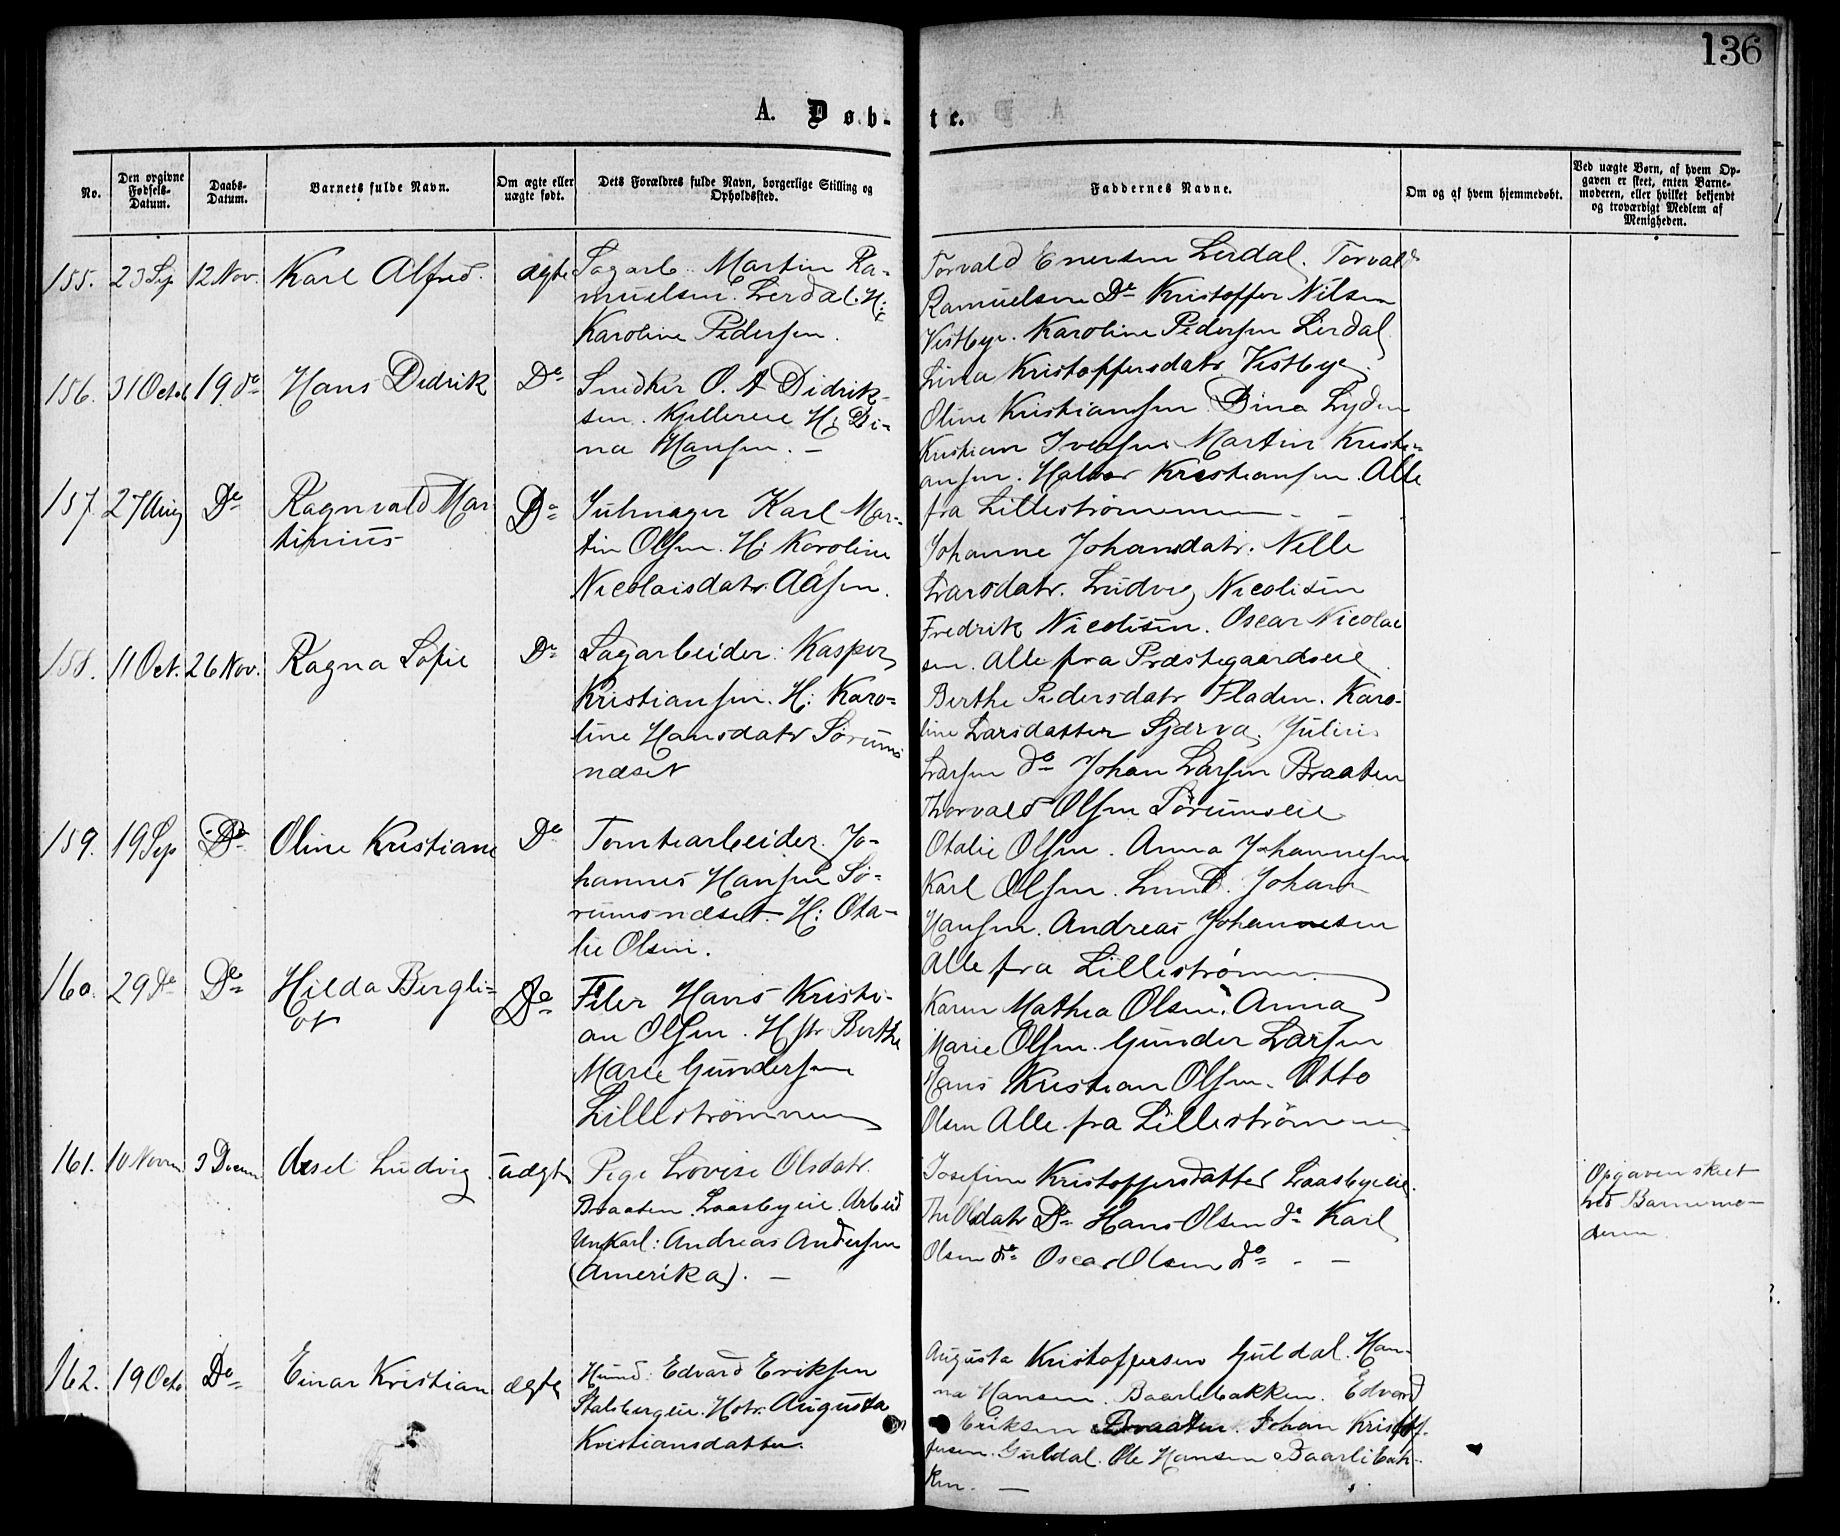 136
A. Døb-
te.
No.
Den opgivne Fødsels-Datum.
Daabs-Datum.
Barnets fulde Navn.
Om ægte eller uægte født.
Dets Forældres fulde Navn, borgerlige Stilling og Opholdssted.
Faddernes Navne.
Om og af hvem hjemmedøbt.
Ved uægte Børn, af hvem Op-
gaven er skeet, enten Barne-
moderen, eller hvilket bekjendt
og troværdigt Medlem af
Menigheden.
155. 23 Sep 12 Nov. Karl Alfred. ægte
Sagarb. Martin Ra-
muelsen. Lerdal. H:
Karoline Pedersen.
Torvald Enersen Lerdal. Torvald
Ramuelsen Do Kristoffer Nilsen
Vestbye. Karoline Pedersen Lerdal
Lina Kristoffersdatr. Vestbye.
156. 31 Octob 19. do Hans Didrik Do
Snedker O. A Didrik-
sen. Kjellereie H: Di-
na Hansen. -
Oline Kristiansen. Dina Lyden
Kristian Iversen Martin Kristi-
ansen. Halvor Kristiansen. Alle
fra Lillestrømmen -
157. 27 Aug Do Ragnvald Mar
tinius Do
Karl Mar-
tin Olsen. H: Karoline
Nicolaisdatr. Aasen.
Johanne Johansdatr. Nelle
Larsdatr. Ludvig Nicolisen
Fredrik Nicolisen. Oscar Nicolai
sen. Alle fra Præstegaardseie
158. 11 Oct. 26 Nov. Ragna Sofie Do
Sagarbeider: Kasper
Kristiansen. H: Karo-
line Hansdatr Sørums
næset
Berthe Pedersdatr Fladen. Karo-
line Larsdatter Sjærva. Julius
Larsen do Johan Larsen Braaten
Thorvald Olsen Sørumseie
159. 19 Sep Do Oline Kristiane Do
Tomtearbeider. Jo-
hannes Hansen Sø-
rumsnæset. H: Ota-
lie Olsen.
Otalie Olsen. Anna Johannesen
Karl Olsen. Lund. Johan
Hansen. Andreas Johannesen
Alle fra Lillestrømmen
160. 29 do Do Hilda Bergli-
ot Do
Filer Hans Kristi-
an Olsen. Hstr Berthe
Marie Gundersen
Lillestrømmen
Karen Mathea Olsen. Anna
Marie Olsen. Gunder Larsen
Hans Kristian Olsen. Otto
Olsen Alle fra Lillestrømmen
161. 10 Novem 3 Decem Aksel Ludvig uægte
Pige Lovise Olsdatr.
Braaten. Laasbyeie. Arbeid
Ungkarl: Andreas Andersen
(Amerika). -
Josefine Kristoffersdatter Laasbyeie.
Olsdatr Do Hans Olsen do Karl
Olsen do Oscar Olsen do - -
Opgaven skeet
ved Barnemo-
deren.
162. 19 Octo Do Einar Kristian ægte
Husmd: Edvard Eriksen
Stalsbergeie. Hstr. Augusta
Kristiansdatter.
Augusta Kristoffersen Guldal. Han-
na Hansen. Baarlibakken. Edvard
Eriksen Braaten. Johan Kristoff-
fersen. Guldal. Ole Hansen Baarlibak-
ken. -